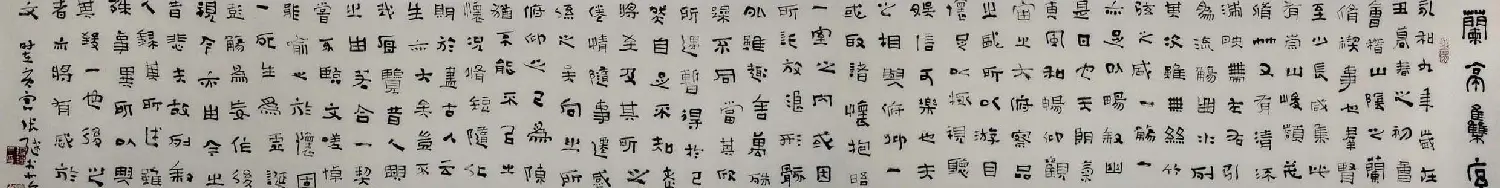 蘭亭集序
永和九年歲在
丑暮春之初會
會稽山陰之蘭
脩禊事也羣賢
至少長咸集此
有崇山峻領茂
脩竹又有清流
湍映帶左右引
為流觴曲水列
其次雖無絲竹
弦之盛一觴一
亦足以暢敘幽
是日也天朗氣
惠風和暢仰觀
宙之大俯察品
之盛所以游目
懷足以極視聽
娛信可樂也夫
之相與俯仰一
或取諸懷抱晤
一室之內或因
所託放浪形骸
外雖趣舍萬殊
躁不同當其欣
所遇暫得於己
然自足不知老
將至及其所之
倦情隨事遷感
係之矣向之所
俯仰之已為陳
猶不能不以之
懷況脩短隨化
期於盡古人云
生亦大矣豈不
哉每覽昔人興
之由若合一契
嘗不臨文嗟悼
能喻之於懷固
一死生為虛誕
彭殤為妄作後
視今亦由今之
昔悲夫故列敘
人錄其所述雖
殊事異所以興
其致一也後之
者亦將有感於
文